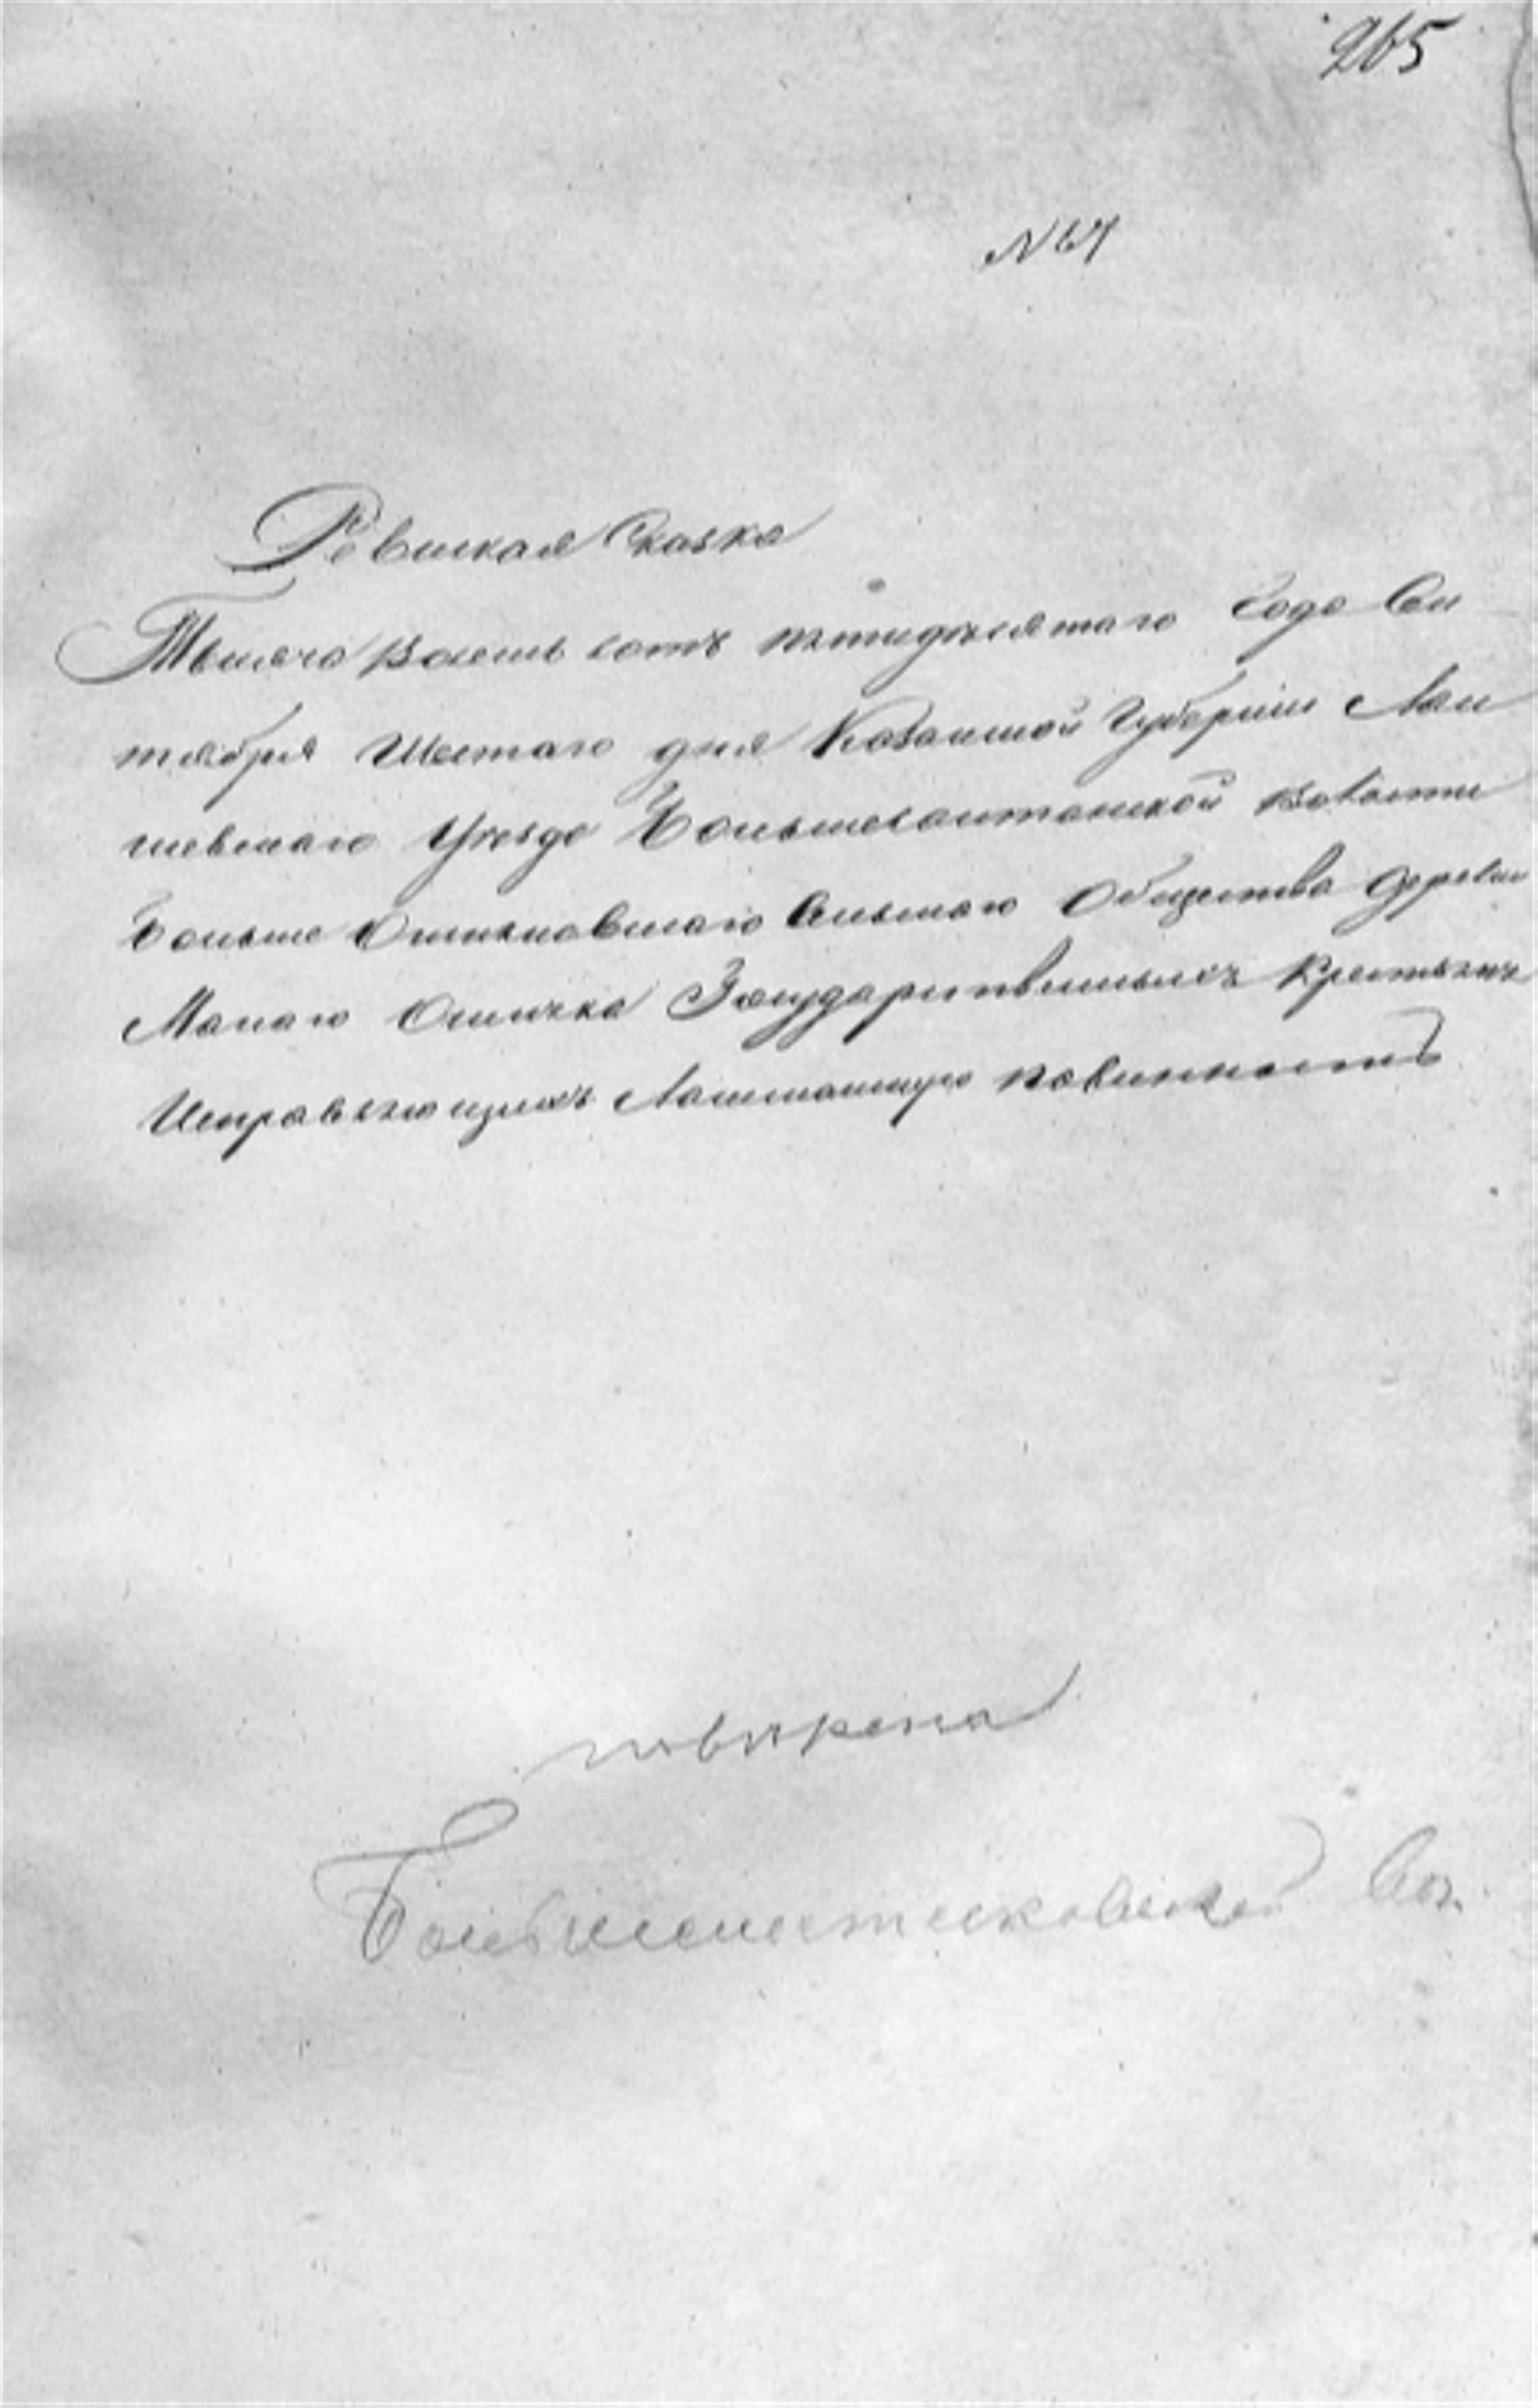 265
№ 67
Ревиская Сказка
Тысяча восемь сотъ пятидесятаго Года Сен
тября Шестаго дня Казанской Губерніи Лаи
шевскаго Уезда Большесаитанской волости
Больше Ошнековскаго Сельскаго Общества деревни
Малаго Ошнека Государственныхъ Крестьянъ
Исправляющихъ Лашманскую повинность
поверена
Вол.